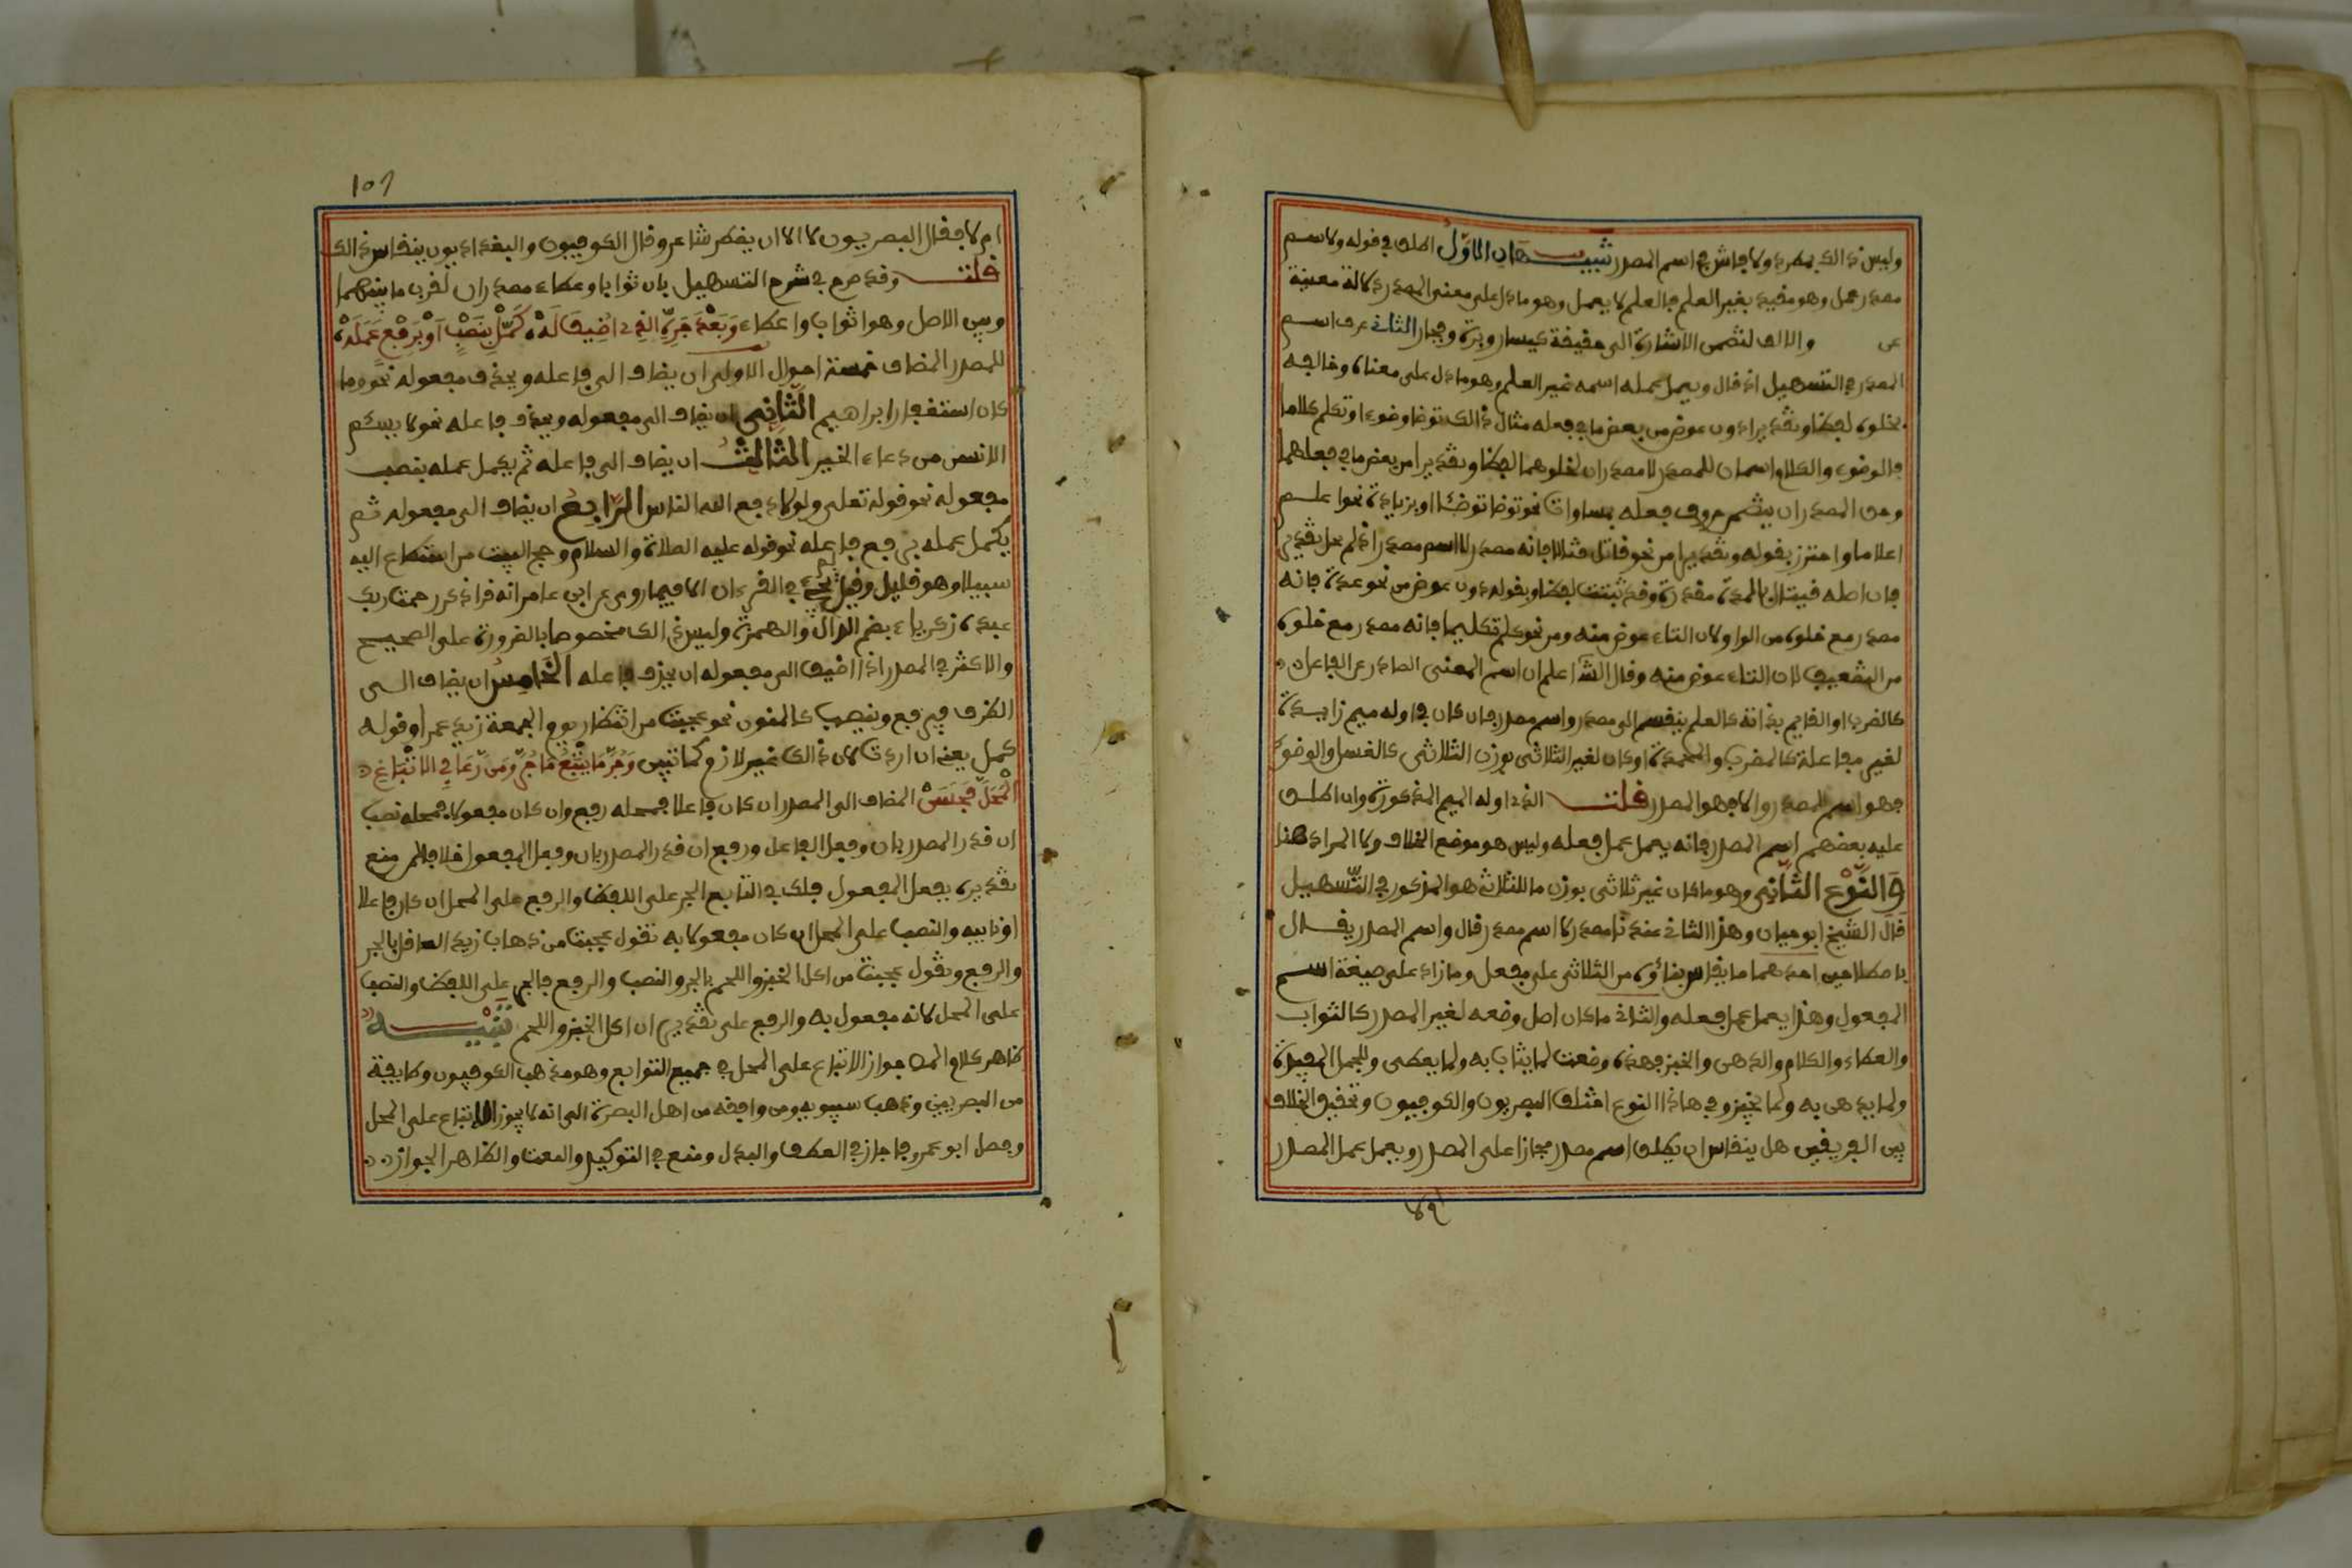 وليس ذالك بمطرد ولا فاش في اسم المصدر تنبيهان الاول اطلق في قوله ولاسم
مصدر عمل وهو مقيد بغير العلم فالعلم لا يعمل وهو ما دل على معنى المصدر دلالة مغنية
عن والالف لتضمن الاشارة الى حقيقة كيسار وبرة وفجار الثاني عرف اسم
المصدر في التسهيل اذ قال ويعمل عمله اسمه غير العلم وهو ما دل على معناه وخالفه
بخلوه لفظا وتقديرا دون عوض من بعض ما في فعله مثال ذالك توضا وضوءا وتكلم كلاما
فالوضوء والكلام اسمان للمصدر لا مصدران لخلوهما لفظا وتقديرا من بعض ما في فعلهما
وحق المصدر ان يتضمن حروف فعله بمساواة نحو توضا توضئا او بزيادة نحو اعلم
اعلاما واحترز بقوله وتقديرا من نحو قاتل قتالا فانه مصدر لا اسم مصدر اذ لم يخل تقديرا
فان اصله قيتال فالمدة مقدرة وقد تثبت لفظا وبقوله دون عوض من نحو عدة فانه
مصدر مع خلوه من الواو لان التاء عوض منه ومن نحو كلم تكليما فانه مصدر مع خلوه
من التضعيف لان التاء عوض منه وقال الش اعلم ان اسم المعنى الصادر عن الفاعل
كالضرب او القايم بذاته كالعلم ينقسم الى مصدر واسم مصدر فان كان في اوله ميم زايدة
لغير مفاعلة كالمضرب والمحمدة او كان لغير الثلاثي بوزن الثلاثي كالغسل والوضوء
فهو اسم المصدر والا فهو المصدر قلت الذي اوله الميم المذكورة وان اطلق
عليه بعضهم اسم المصدر فانه يعمل عمل فعله وليس هو موضع الخلاف ولا المراد هنا
والنوع الثاني وهو ما كان غير ثلاثي بوزن ما للثلاثي هو المذكور في التسهيل
قال الشيخ ابو حيان وهذا الثاني عندنا مصدر لا اسم مصدر قال واسم المصدر يقال
باصطلاحين احدهما ما ينقاس بناؤه من الثلاثي على مفعل وما زاد على صيغة اسم
المفعول وهذا يعمل عمل فعله والثاني ما كان اصل وضعه لغير المصدر كالثواب
والعطاء والكلام والدهن والخبز فهذه وضعت لما يثاب به ولما يعطى وللجمل المفيدة
ولما يدهن به ولما يخبز وفي هاذا النوع اختلف البصريون والكوفيون وتحقيق الخلاف
بين الفريقين هل ينقاس ان يطلق اسم مصدر مجازا على المصدر ويعمل عمل المصدر
ام لا فقال البصريون لا الا ان يضطر شاعر وقال الكوفيون والبغداديون ينقاس ذالك
قلت وقد صرح في شرح التسهيل بان ثوابا وعطاء مصدران لقرب ما بينهما
وبين الاصل وهو اثوابا واعطاء وبعد جره الذي اضيف له كمل بنصب او برفع عمله
للمصدر المضاف خمسة احوال الاولى ان يضاف الى فاعله ويحذف مفعوله نحو وما
كان استغفار ابراهيم الثاني ان يضاف الى مفعوله ويحذف فاعله نحو لا يسئم
الانسن من دعاء الخير الثالث ان يضاف الى فاعله ثم يكمل عمله بنصب
مفعوله نحو قوله تعلى ولولا دفع الله الناس الرابع ان يضاف الى مفعوله ثم
يكمل عمله برفع فاعله نحو قوله عليه الصلاة والسلام وحج البيت من استطاع اليه
سبيلا وهو قليل وقيل لم يجئ في القرءان الا فيما روى عن ابن عامر انه قرا ذكر رحمت ربك
عبده زكرياء بضم الدال والهمزة وليس ذالك مخصوصا بالضرورة على الصحيح
والاكثر في المصدر اذا اضيف الى مفعوله ان يحذف فاعله الخامس ان يضاف الى
الظرف فيرفع وينصب كالمنون نحو عجبت من انتظار يوم الجمعة زيد عمرا وقوله
كمل يعني ان اردت لان ذالك غير لازم كما تبين وجر ما يتبع ما جر ومن رعا في الاتباع
المحل فحسن المضاف الى المصدر ان كان فاعلا فمحله رفع وان كان مفعولا فمحله نصب
ان قدر المصدر بان وفعل الفاعل ورفع ان قدر المصدر بان وفعل المفعول خلافا لمن منع
تقديره بفعل المفعول فلك في التابع الجر على اللفظ والرفع على المحل ان كان فاعلا
او نايبه والنصب على المحل ان كان مفعولا به تقول عجبت من ذهاب زيد العاقل بالجر
والرفع وتقول عجبت من اكل الخبز واللحم بالجر والنصب والرفع فالجر على اللفظ والنصب
على المحل لانه مفعول به والرفع على تقدير ان اكل الخبز واللحم تنبيه
ظاهر كلام المص جواز الاتباع على المحل في جميع التوابع وهو مذهب الكوفيون وطايفة
من البصريين وذهب سيبويه ومن وافقه من اهل البصرة الى انه لا يجوز الاتباع على المحل
وفصل ابو عمرو فاجاز في العطف والبدل ومنع في التوكيد والنعت والظاهر الجواز